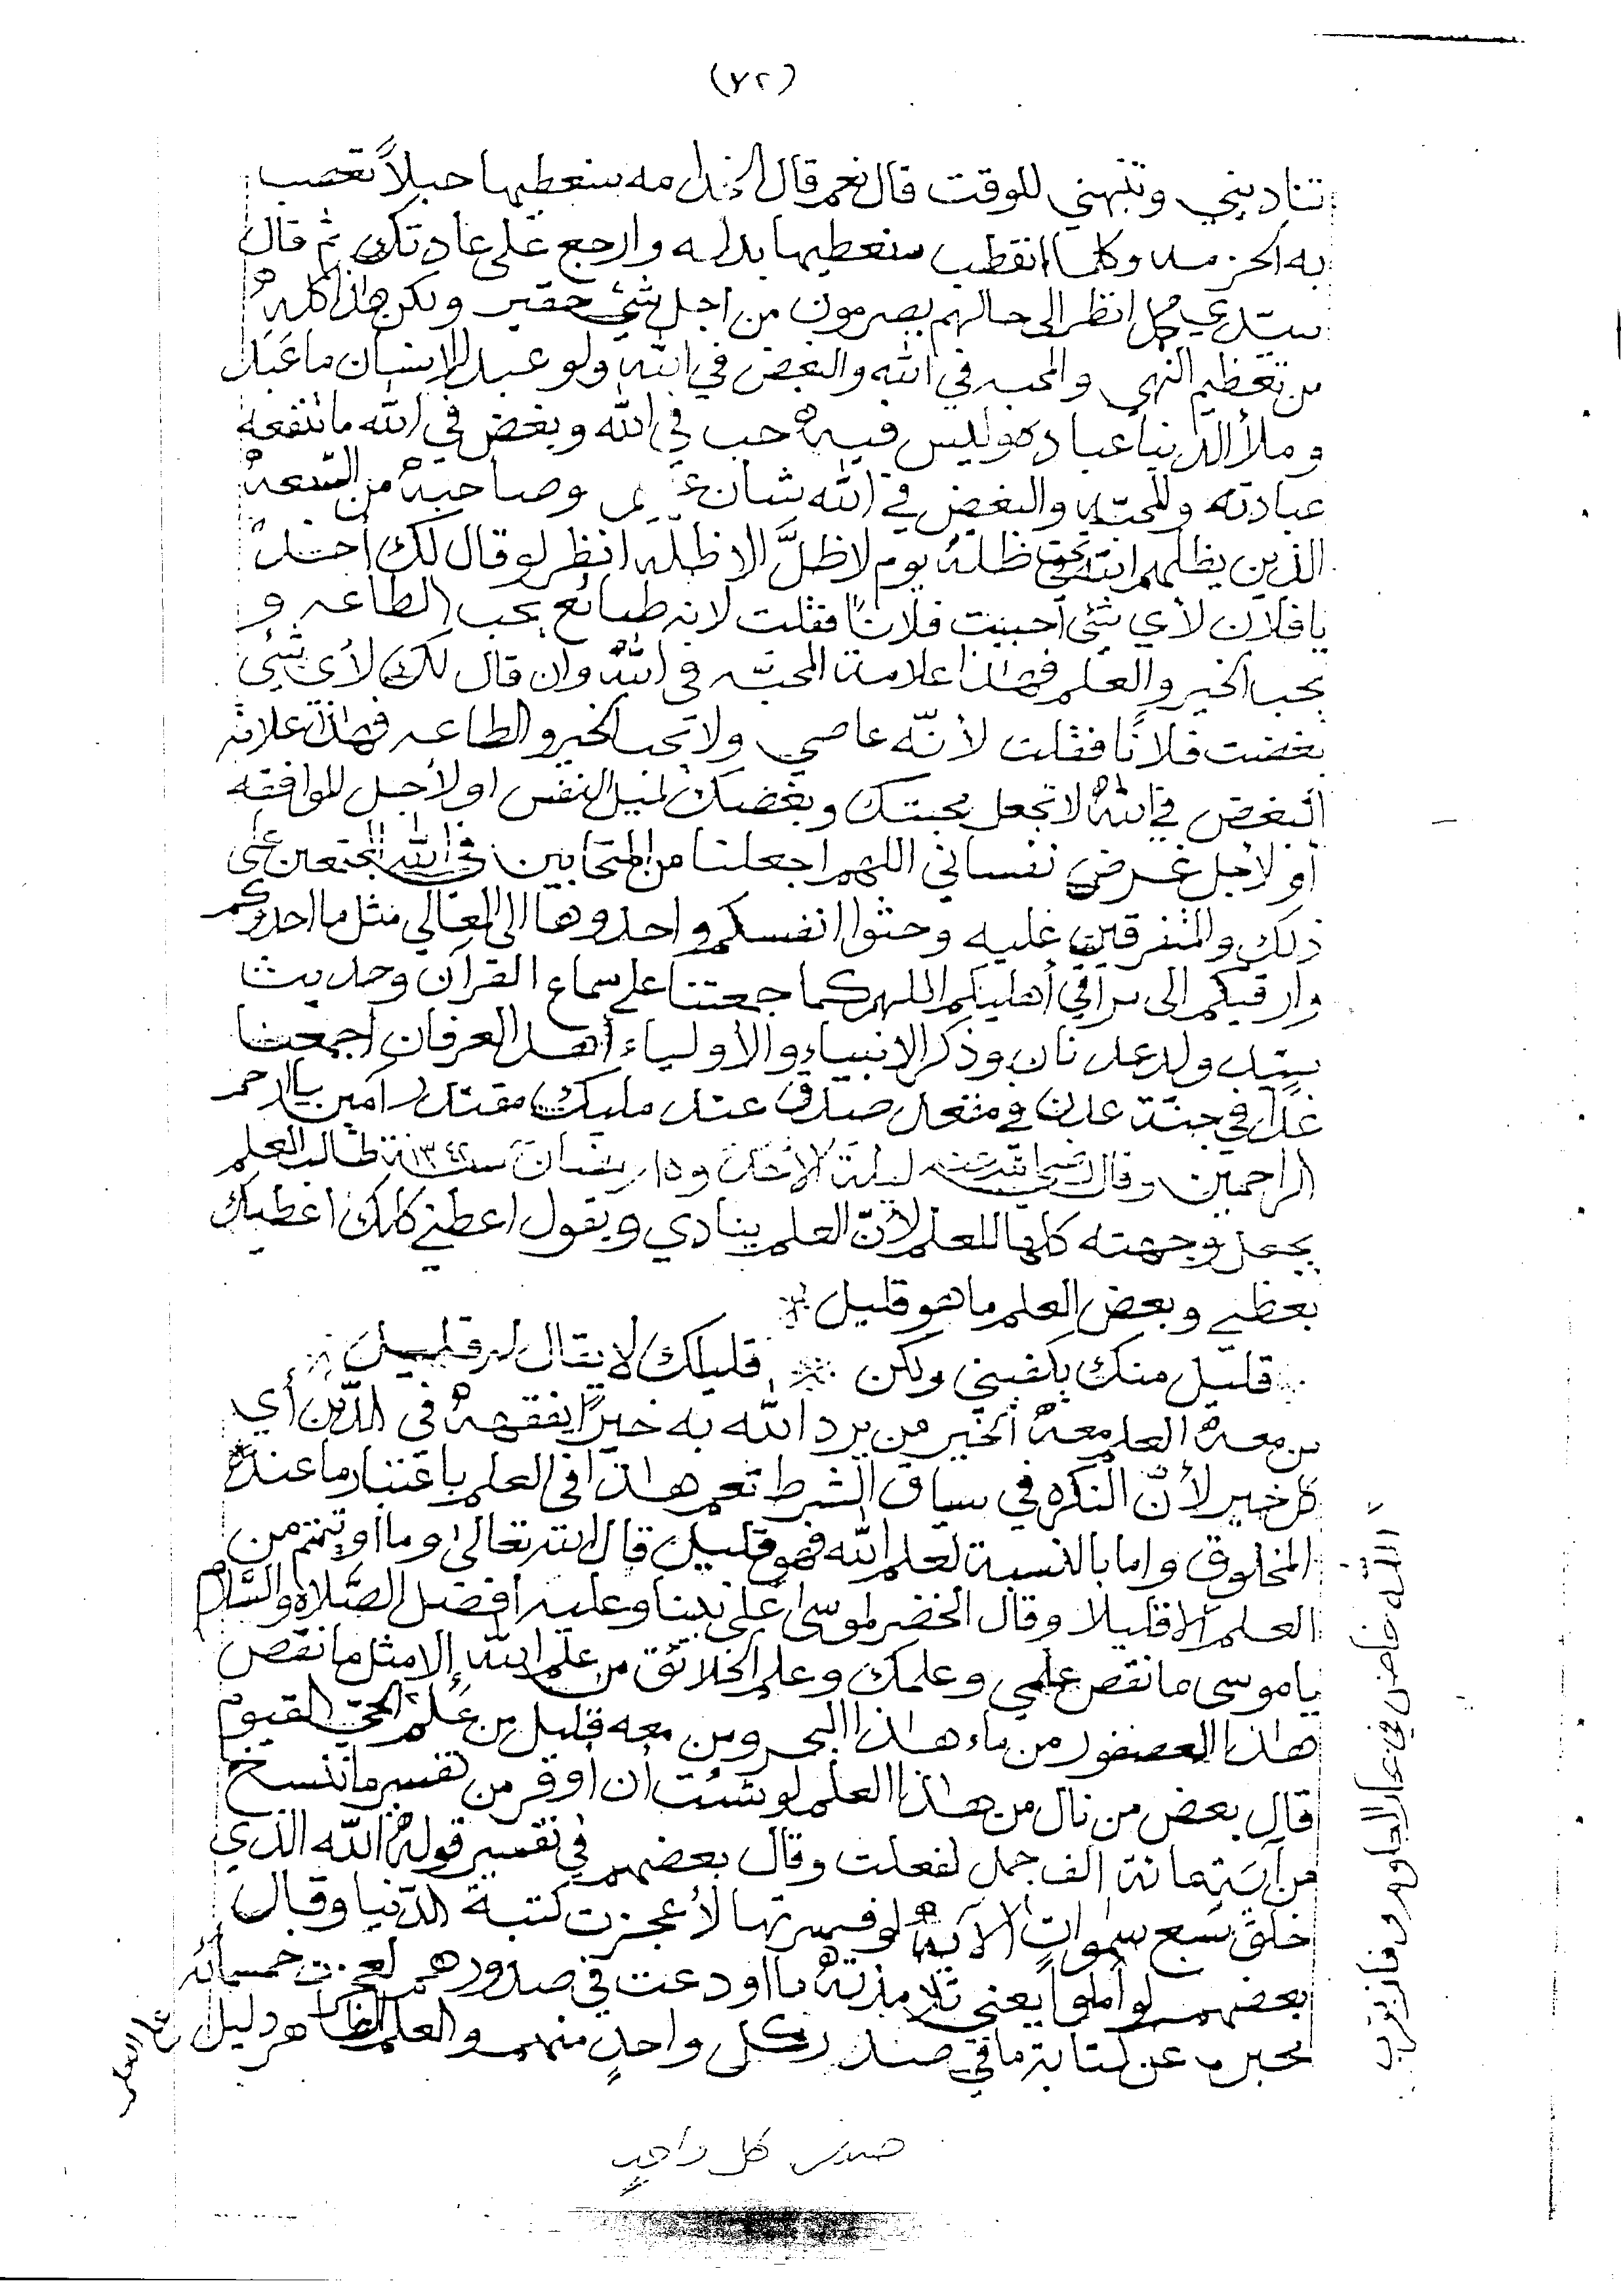 (٧٢)
تناديني وتنبهني للوقت قال نعم قال الخدامه سنعطيها حبلاً تعصب
به الحزمه وكلما انقطب سنعطيها بداله وارجع على عادتك ثم قال
سيدي انظر الى حالهم يصرمون من اجل شئ حقير ولكن هذا كلهُ
من تعظيم النهي والمحبه في الله والبغض في الله ولو عبد الإنسان ما عَبَد
وملأ الدنيا عباده وليس فيه حب في الله وبغض في الله ما تنفعه
عبادته وللمحبّه والبغض في الله شان وصاحبهُ من السّبعهُ
الذين يظلهم الله تحت ظله يوم لا ظلَّ الا ظلّه انظر لو قال لك أحدٌ
يا فلان لأي شئي أحببت فلاناً فقلت لانه طائع يحب الطاعه و
يحب الخير والعلم فهذا علامة المحبّه في الله وان قال لك لأي شئي
بغضت فلانًا فقلت لأنّه عاصي ولا يحب الخير والطاعه فهذا علامة
البغض في الله لا تجعل محبتك وبغضك لميل النفس او لأجل للموافقه
أو لأجل غرض نفساني اللهم اجعلنا من المتحابين في الله المجتمعين على
ذلك والمتفرقين عليه وحثوا انفسكم واحدوها الى المعالي مثل ما احدوكم
وارقيكم الى مراقي أهليكم اللهم كما جمعتنا على سماع القرآن وحديث
سيّد ولد عدنان وذكر الانبياء والأولياء أهل العرفان اجمعنا
غداً في جنّة عدن في مقعد صدق عند مليك مقتدر آمين يا ارحم
الراحمين وقال رضي الله عنه ليلة الأحد و١٥ رمضان سنة ١٣٤٢ طالب العلم
يجعل وجهته كلها للعلم لأنّ العلم ينادي ويقول اعطني كلك اعطيك
بعظي وبعض العلم ما هو قليل
قليل منك يكفيني ولكن قليلك لا يقال له قليل
من معهُ العلم معهُ الخير من يرد الله به خيراً يفقههُ في الدّين أي
كل خير لأنّ النكره في سياق الشرط تعم هذا في العلم باعتبار ما عندهُ
المخلوق واما بالنسبة لعلم الله فهو قليل قال الله تعالى وما اوتيتم من
العلم الا قليلا وقال الخضر لموسى على نبينا وعليه افضل الصَّلاة والسَّلام
يا موسى ما نقص علمي وعلمك وعلم الخلائق من علم الله إلا مثل ما نقص
هذا العصفور من ماء هذا البحر ومن معه قليل من علم الحيّ القيوم
قال بعض من نال من هذا العلم لو شئت أن اوقر من تفسير ما ننسخ
من آية مائة الف جمل لفعلت وقال بعضهم في تفسير قولهُ الله الذي
خلق سبع سمواتٍ الآيه لو فسرتها لأعجزت كتبة الدّنيا وقال
بعضهم لو أملوا يعني تلامذتهُ ما اودعت في صدورهم لعجزت خمسمائه
محبره عن كتابة ما في صدر كل واحدٍ منهم والعلم الظاهر دليل على العلم
صدر كل واحدٍ
الله خاض في بحار وفاز بقرب